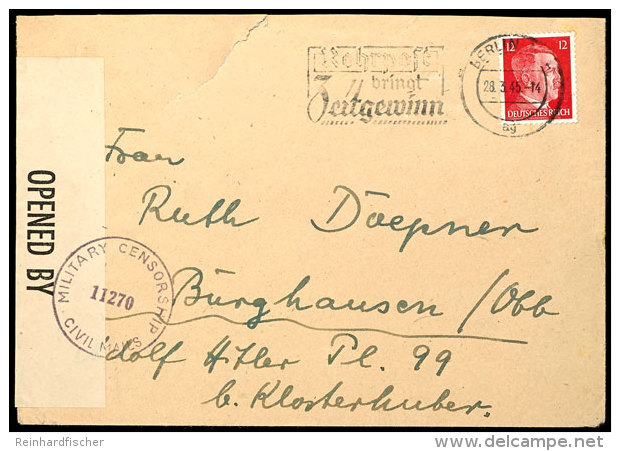 Rohrpost
bringt
Zeitgewinn
BERLIN
28.3.45.-14
ag
12 12
DEUTSCHES REICH
OPENED BY
MILITARY CENSORSHIP
11270
CIVIL MAILS
Frau
Ruth Döepner
Burghausen/Obb
Adolf Hitler Pl. 99
b. Klosterhuber.
Reinhardfischer
www.delcampe.net